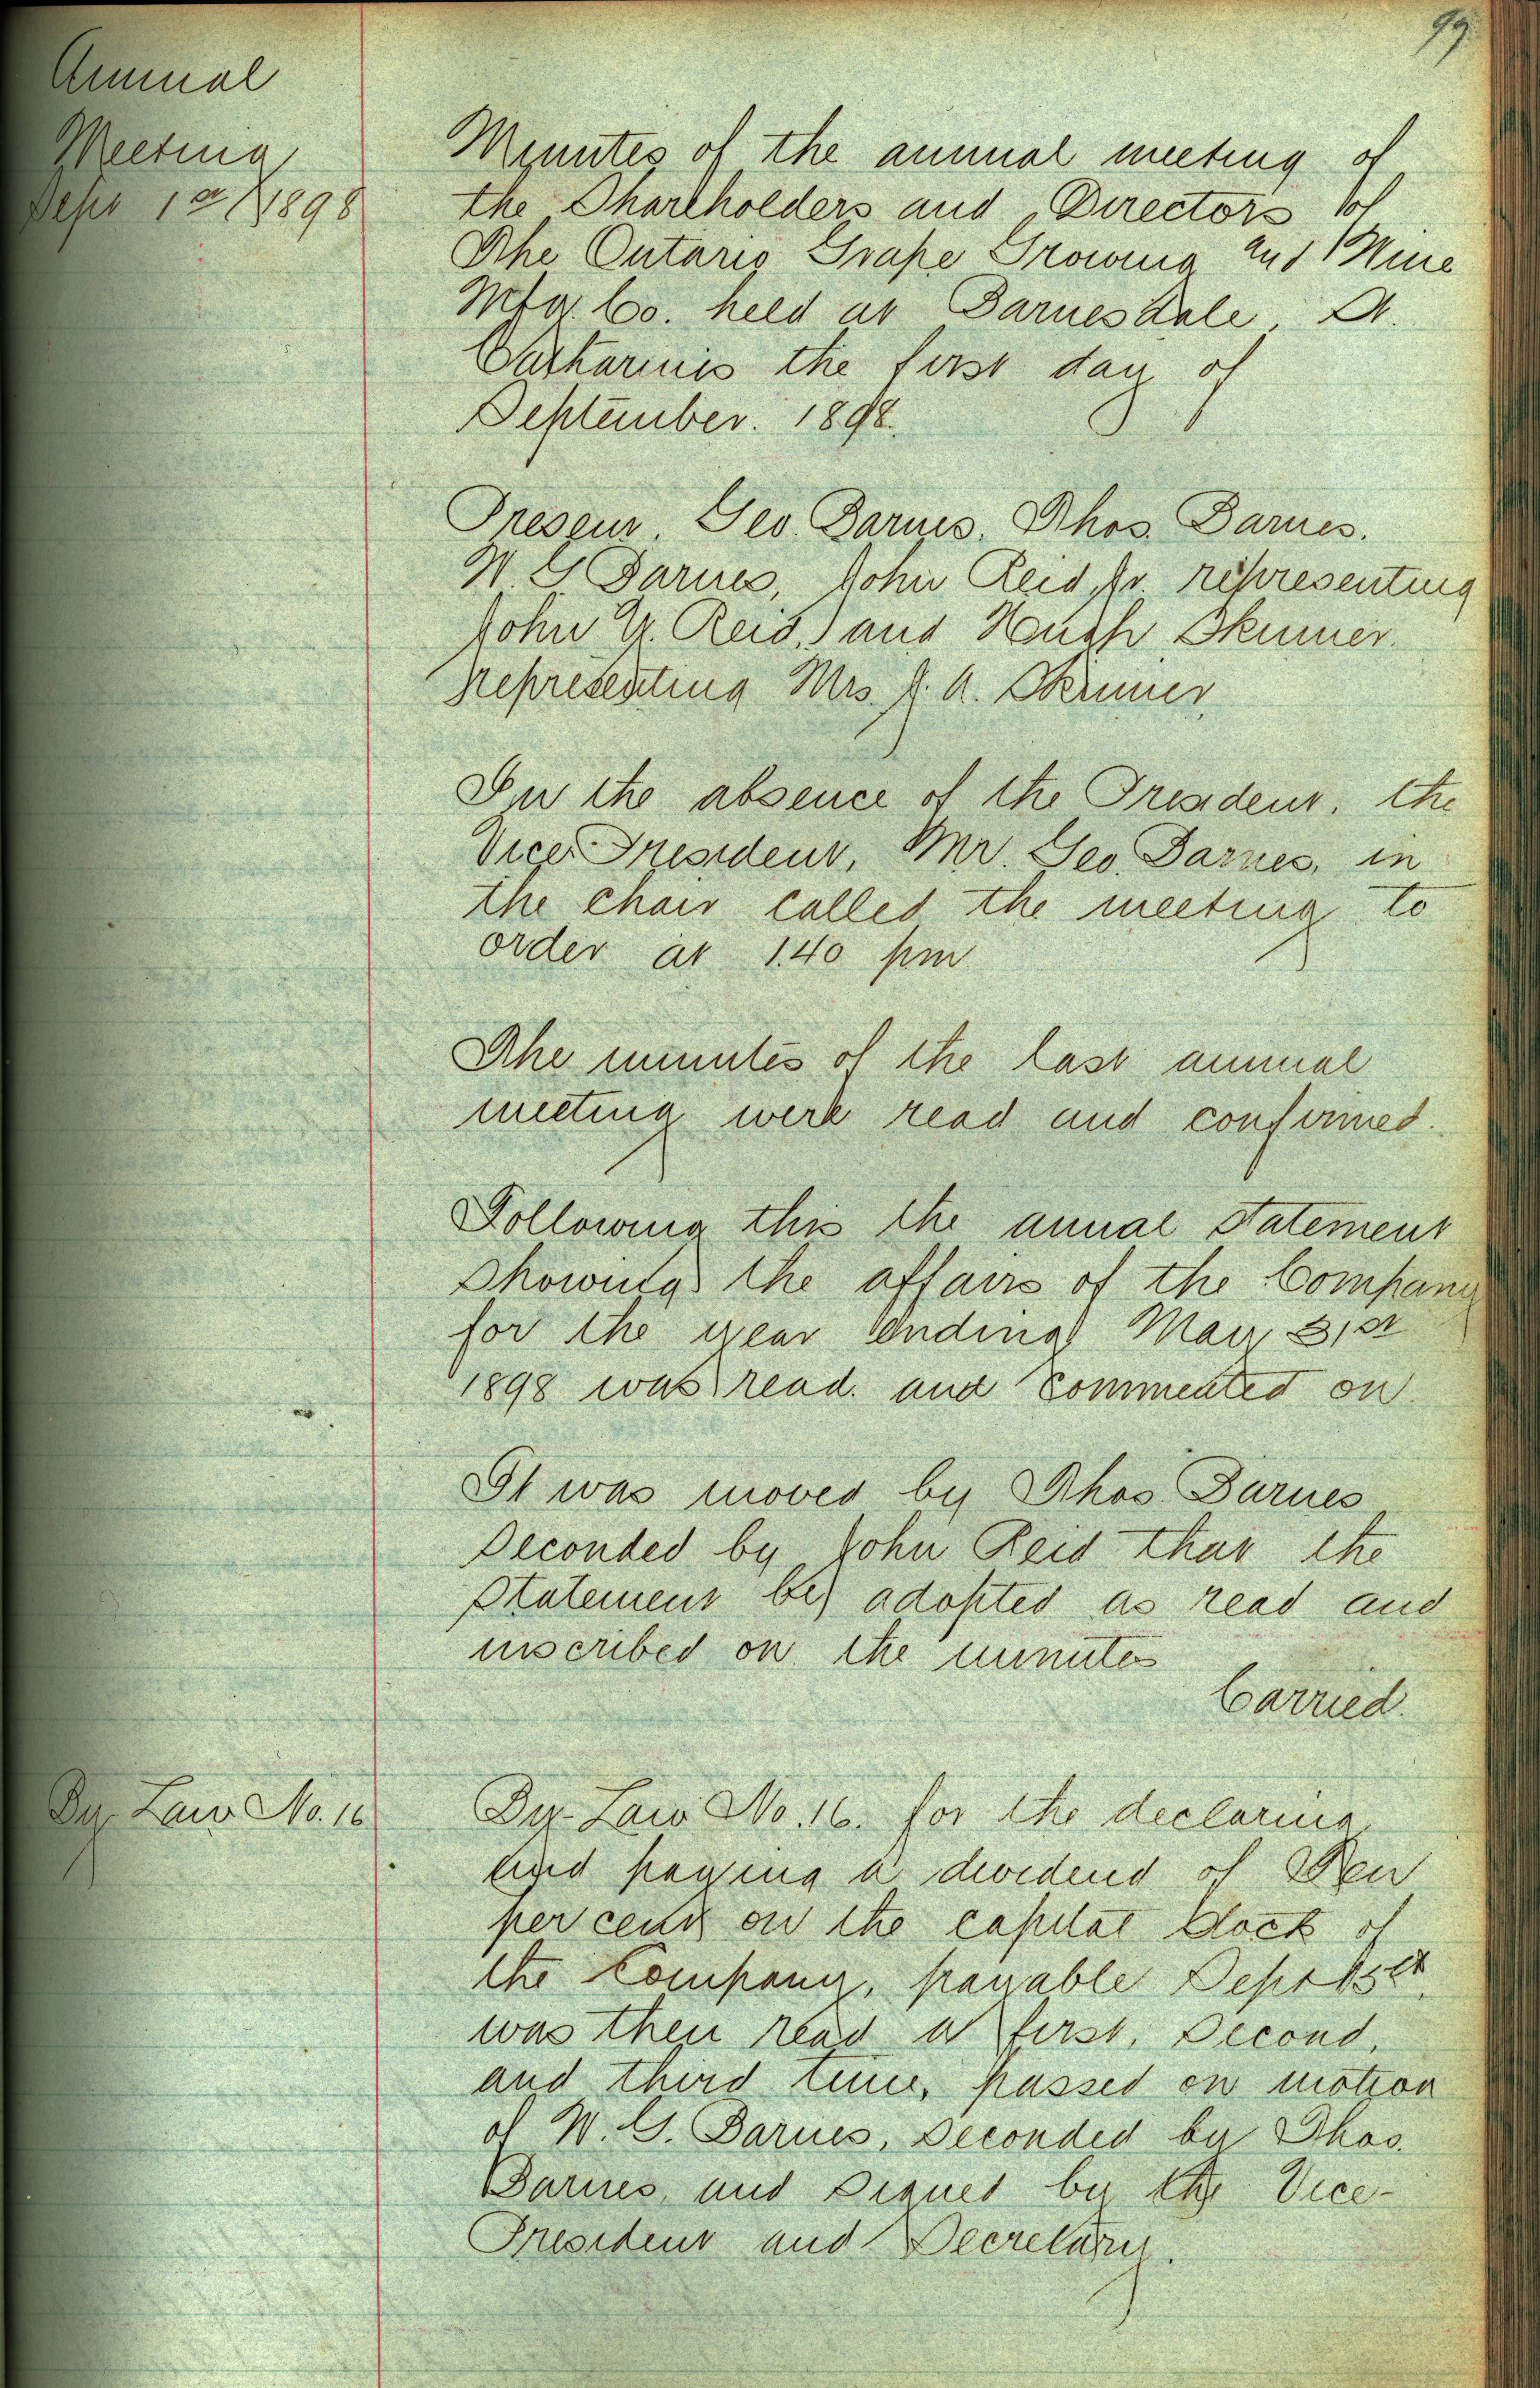 99
Annual
Meeting
Sept 1st 1898
Minutes of the annual meeting of
the Shareholders and Directors of
The Ontario Grape Growing and Wine
Mfg. Co. held at Barnesdale, St.
Catharines the first day of
September. 1898.
Present. Geo. Barnes. Thos. Barnes.
W. G. Barnes, John Reid, Jr. representing
John Y. Reid, and Hugh Skinner.
representing Mrs. J. A. Skinner.
In the absence of the President. the
Vice President, Mr. Geo. Barnes, in
the chair called the meeting to
order at 1.40 pm
The minutes of the last annual
meeting were read and confirmed.
Following this the annual statement
showing the affairs of the Company
for the year ending May 31st
1898 was read. and commented on
It was moved by Thos. Barnes
seconded by John Reid that the
statement be adopted as read and
inscribed on the minutes
Carried.
By-Law No. 16
By-Law No. 16. for the declaring
and paying a dividend of Ten
per cent on the capital stock of
the Company, payable Sept 1st.
was then read a first, second,
and third time, passed on motion
of W. G. Barnes, seconded by Thos.
Barnes, and signed by the Vice-
President and Secretary.